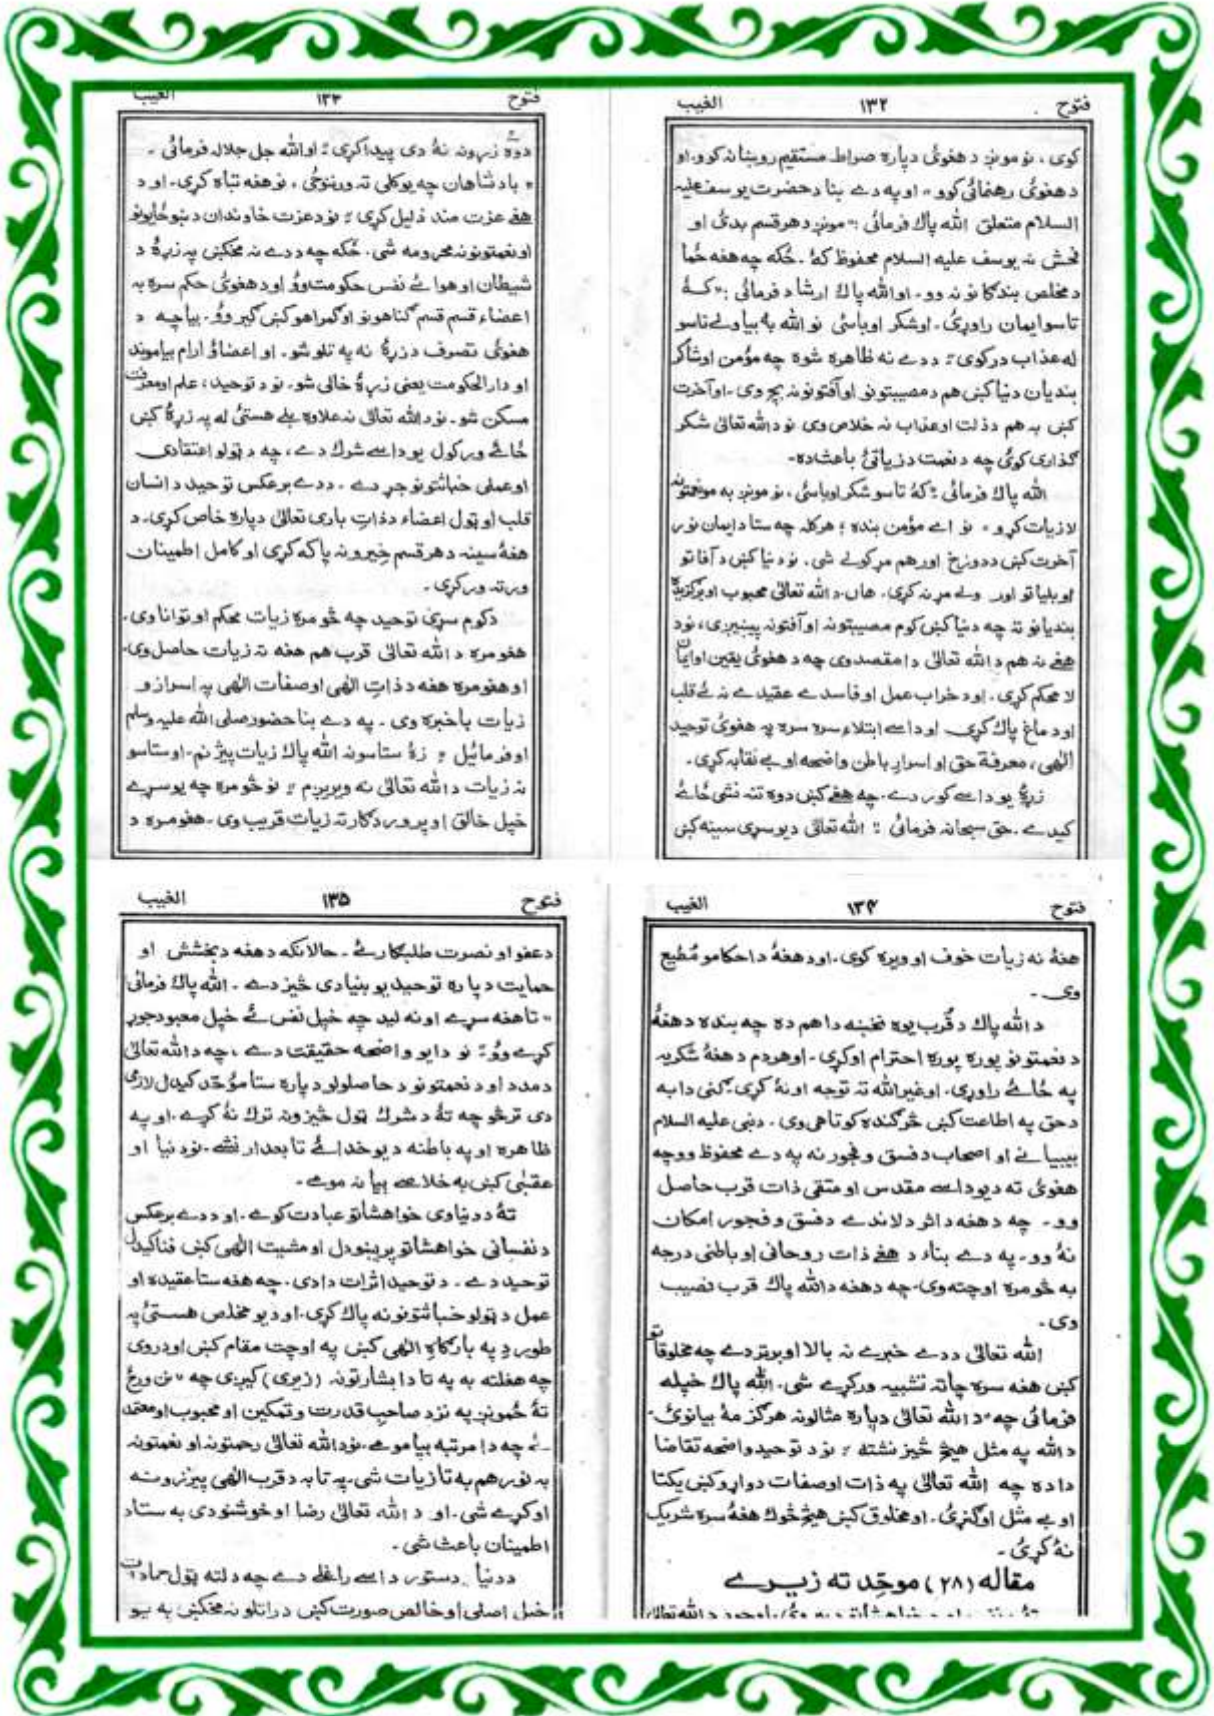 فتوح ۱۳۲ الغیب
کوی، نو مونږ د هغوئ دپاره صراط مستقیم روښانه کوو، او
د هغوئ رهنمائی کوو" او په دے بنا د حضرت یوسف علیه
السلام متعلق الله پاک فرمائی :" مونږ د هر قسم بدئ او
فحش نه یوسف علیه السلام محفوظ کهٔ . ځکه چه هغه ځما
د مخلص بندګانو نه وو. او الله پاک ارشاد فرمائی :" کهٔ
تاسو ایمان راوړئ. او شکر اوباسئ نو الله به بیا ولے تاسو
له عذاب درکوی : د دے نه ظاهره شوه چه مؤمن او شاکر
بندیان دنیا کښ هم د مصیبتونو او آفتونو نه بچ وی. او آخرت
کښ به هم د ذلت او عذاب نه خلاص وی نو د الله تعالیٰ شکر
ګذاری کوئ چه د نعمت د زیاتئ باعث ده-
الله پاک فرمائی : کهٔ تاسو شکر اوباسئ، نو مونږ به مو نعمتونه
لا زیات کړو " نو اے مؤمن بنده ! هر کله چه ستا د ایمان نور
آخرت کښ د دوزخ اور هم مړ کولے شی. نو دنیا کښ د آفاتو
او بلیاتو اور ولے مړ نه کړی. هاں. د الله تعالیٰ محبوب او برګزیده
بندیانو ته چه دنیا کښ کوم مصیبتونه او آفتونه پیښیږی، نو د
هغے نه هم د الله تعالیٰ دا مقصد وی چه د هغوئ یقین او ایمان
لا محکم کړی. او د خراب عمل او فاسدے عقیدے نه ئے قلب
او دماغ پاک کړی او داسے ابتلاء سره سره په هغوئ توحید
الٰهی، معرفة حق او اسرار باطن واضحه او بے نقابه کړی.
زړهٔ یو داسے کور دے. چه هغے کښ دوه تنه نشی ځائے
کیدے. حق سبحانه فرمائی : الله تعالیٰ د یو سړی سینه کښ
فتوح ۱۳۳ الغیب
دوه زړونه نهٔ دی پیدا کړی : او الله جل جلاله فرمائی .
" بادشاهان چه یو کلی ته ورننوځی، نو هغه تباه کړی. او د
هغے عزت مند ذلیل کړی : نو د عزت خاوندان د ښو ځایونو
او نعمتونو نه محرومه شی. ځکه چه د دے نه مخکښ په زړهٔ د
شیطان او هوائے نفس حکومت وؤ او د هغوئ حکم سره به
اعضاء قسم قسم ګناهونو او ګمراهو کښ ګیر وؤ. بیا چه د
هغوئ تصرف د زړهٔ نه په تلو شو. او اعضاؤ ارام بیاموند
او دارالحکومت یعنی زړهٔ خالی شو. نو د توحید، علم او معرفت
مسکن شو. نو د الله تعالیٰ نه علاوه بلے هستئ له په زړهٔ کښ
ځائے ورکول یو داسے شرک دے، چه د ټولو اعتقادی
او عملی خباثتونو جړ دے . د دے برعکس توحید د انسان
قلب او ټول اعضاء د ذات باری تعالیٰ دپاره خاص کړی. د
هغهٔ سینه د هر قسم خیرو نه پاکه کړی او کامل اطمینان
ورته ورکړی.
د کوم سړی توحید چه څومره زیات محکم او توانا وی.
هغومره د الله تعالیٰ قرب هم هغه ته زیات حاصل وی.
او هغومره هغه د ذات الٰهی او صفات الٰهی په اسرارو
زیات باخبره وی . په دے بنا حضور صلی الله علیه وسلم
اوفرمائیل : زهٔ ستاسو نه الله پاک زیات پیژنم. او ستاسو
نه زیات د الله تعالیٰ نه ویریږم : نو څومره چه یو سړے
خپل خالق او پروردګار ته زیات قریب وی. هغومره د
فتوح ۱۳۴ الغیب
هغهٔ نه زیات خوف او ویره کوی. او د هغهٔ د احکامو مُطیع
وی -
د الله پاک د قُرب یوه نخښه دا هم ده چه بنده د هغهٔ
د نعمتونو پوره پوره احترام اوکړی. او هر دم د هغهٔ شکریه
په ځائے راوړی. او غیر الله ته توجه اونهٔ کړی. ګنی دا به
د حق په اطاعت کښ څرګنده کوتاهی وی. د نبی علیه السلام
بیبیانے او اصحاب د فسق و فجور نه په دے محفوظ وو چه
هغوئ ته د یو داسے مقدس او متقی ذات قرب حاصل
وو. چه د هغه د اثر د لاندے د فسق و فجور امکان
نهٔ وو. په دے بناء د هغے ذات روحانی او باطنی درجه
به څومره اوچته وی. چه د هغه د الله پاک قرب نصیب
وی.
الله تعالیٰ د دے خبرے نه بالا او برتر دے چه مخلوقاتو
کښ هغه سره چاته تشبیه ورکړے شی. الله پاک خپله
فرمائی چه " د الله تعالیٰ دپاره مثالونه هرګز مهٔ بیانوئ.
د الله په مثل هیڅ څیز نشته : نو د توحید واضحه تقاضا
دا ده چه الله تعالیٰ په ذات او صفات دواړو کښ یکتا
او بے مثل اوګنړئ. او مخلوق کښ هیڅ څوک هغهٔ سره شریک
نهٔ کړئ.
مقاله (۲۸) موحّد ته زیرے
فتوح ۱۳۵ الغیب
د عفو او نصرت طلبګار ئے. حالانکه د هغه د بخشش او
حمایت دپاره توحید یو بنیادی څیز دے . الله پاک فرمائی
" تا هغه سړے اونه لید چه خپل نفس ئے خپل معبود جوړ
کړے وؤ : نو دا یو واضحه حقیقت دے، چه د الله تعالیٰ
د مدد او د نعمتونو د حاصلولو دپاره ستا مؤحّد کیدل لازمی
دی ترڅو چه تهٔ د شرک ټول څیزونه ترک نهٔ کړے. او په
ظاهره او په باطنه د یو خدائے تابعدار نشے. نو د دنیا او
عقبٰی کښ به خلاصے بیا نه مومے.
تهٔ د دنیاوی خواهشاتو عبادت کوے. او د دے برعکس
د نفسانی خواهشاتو پریښودل او مشیت الٰهی کښ فنا کیدل
توحید دے. د توحید اثرات دا دی. چه هغه ستا عقیده او
عمل د ټولو خباثتونو نه پاک کړی. او د یو مخلص هستئ په
طور دِ په بارګاهِ الٰهی کښ په اوچت مقام کښ اودروی
چه هغلته به په تا دا بشارتونه (زیری) کیږی چه " نن ورځ
تهٔ ځمونږ په نزد صاحب قدرت و تمکین او محبوب او معتمد
ئے چه دا مرتبه بیا مومے. نو د الله تعالیٰ رحمتونه او نعمتونه
به نور هم په تا زیات شی. په تا به د قرب الٰهی پیرزونه
اوکړے شی. او د الله تعالیٰ رضا او خوشنودی به ستا د
اطمینان باعث شی.
د دنیا دستور داسے راغلے دے چه دلته ټول جمادات
خپل اصلی او خالص صورت کښ د راتلو نه مخکښ به یو